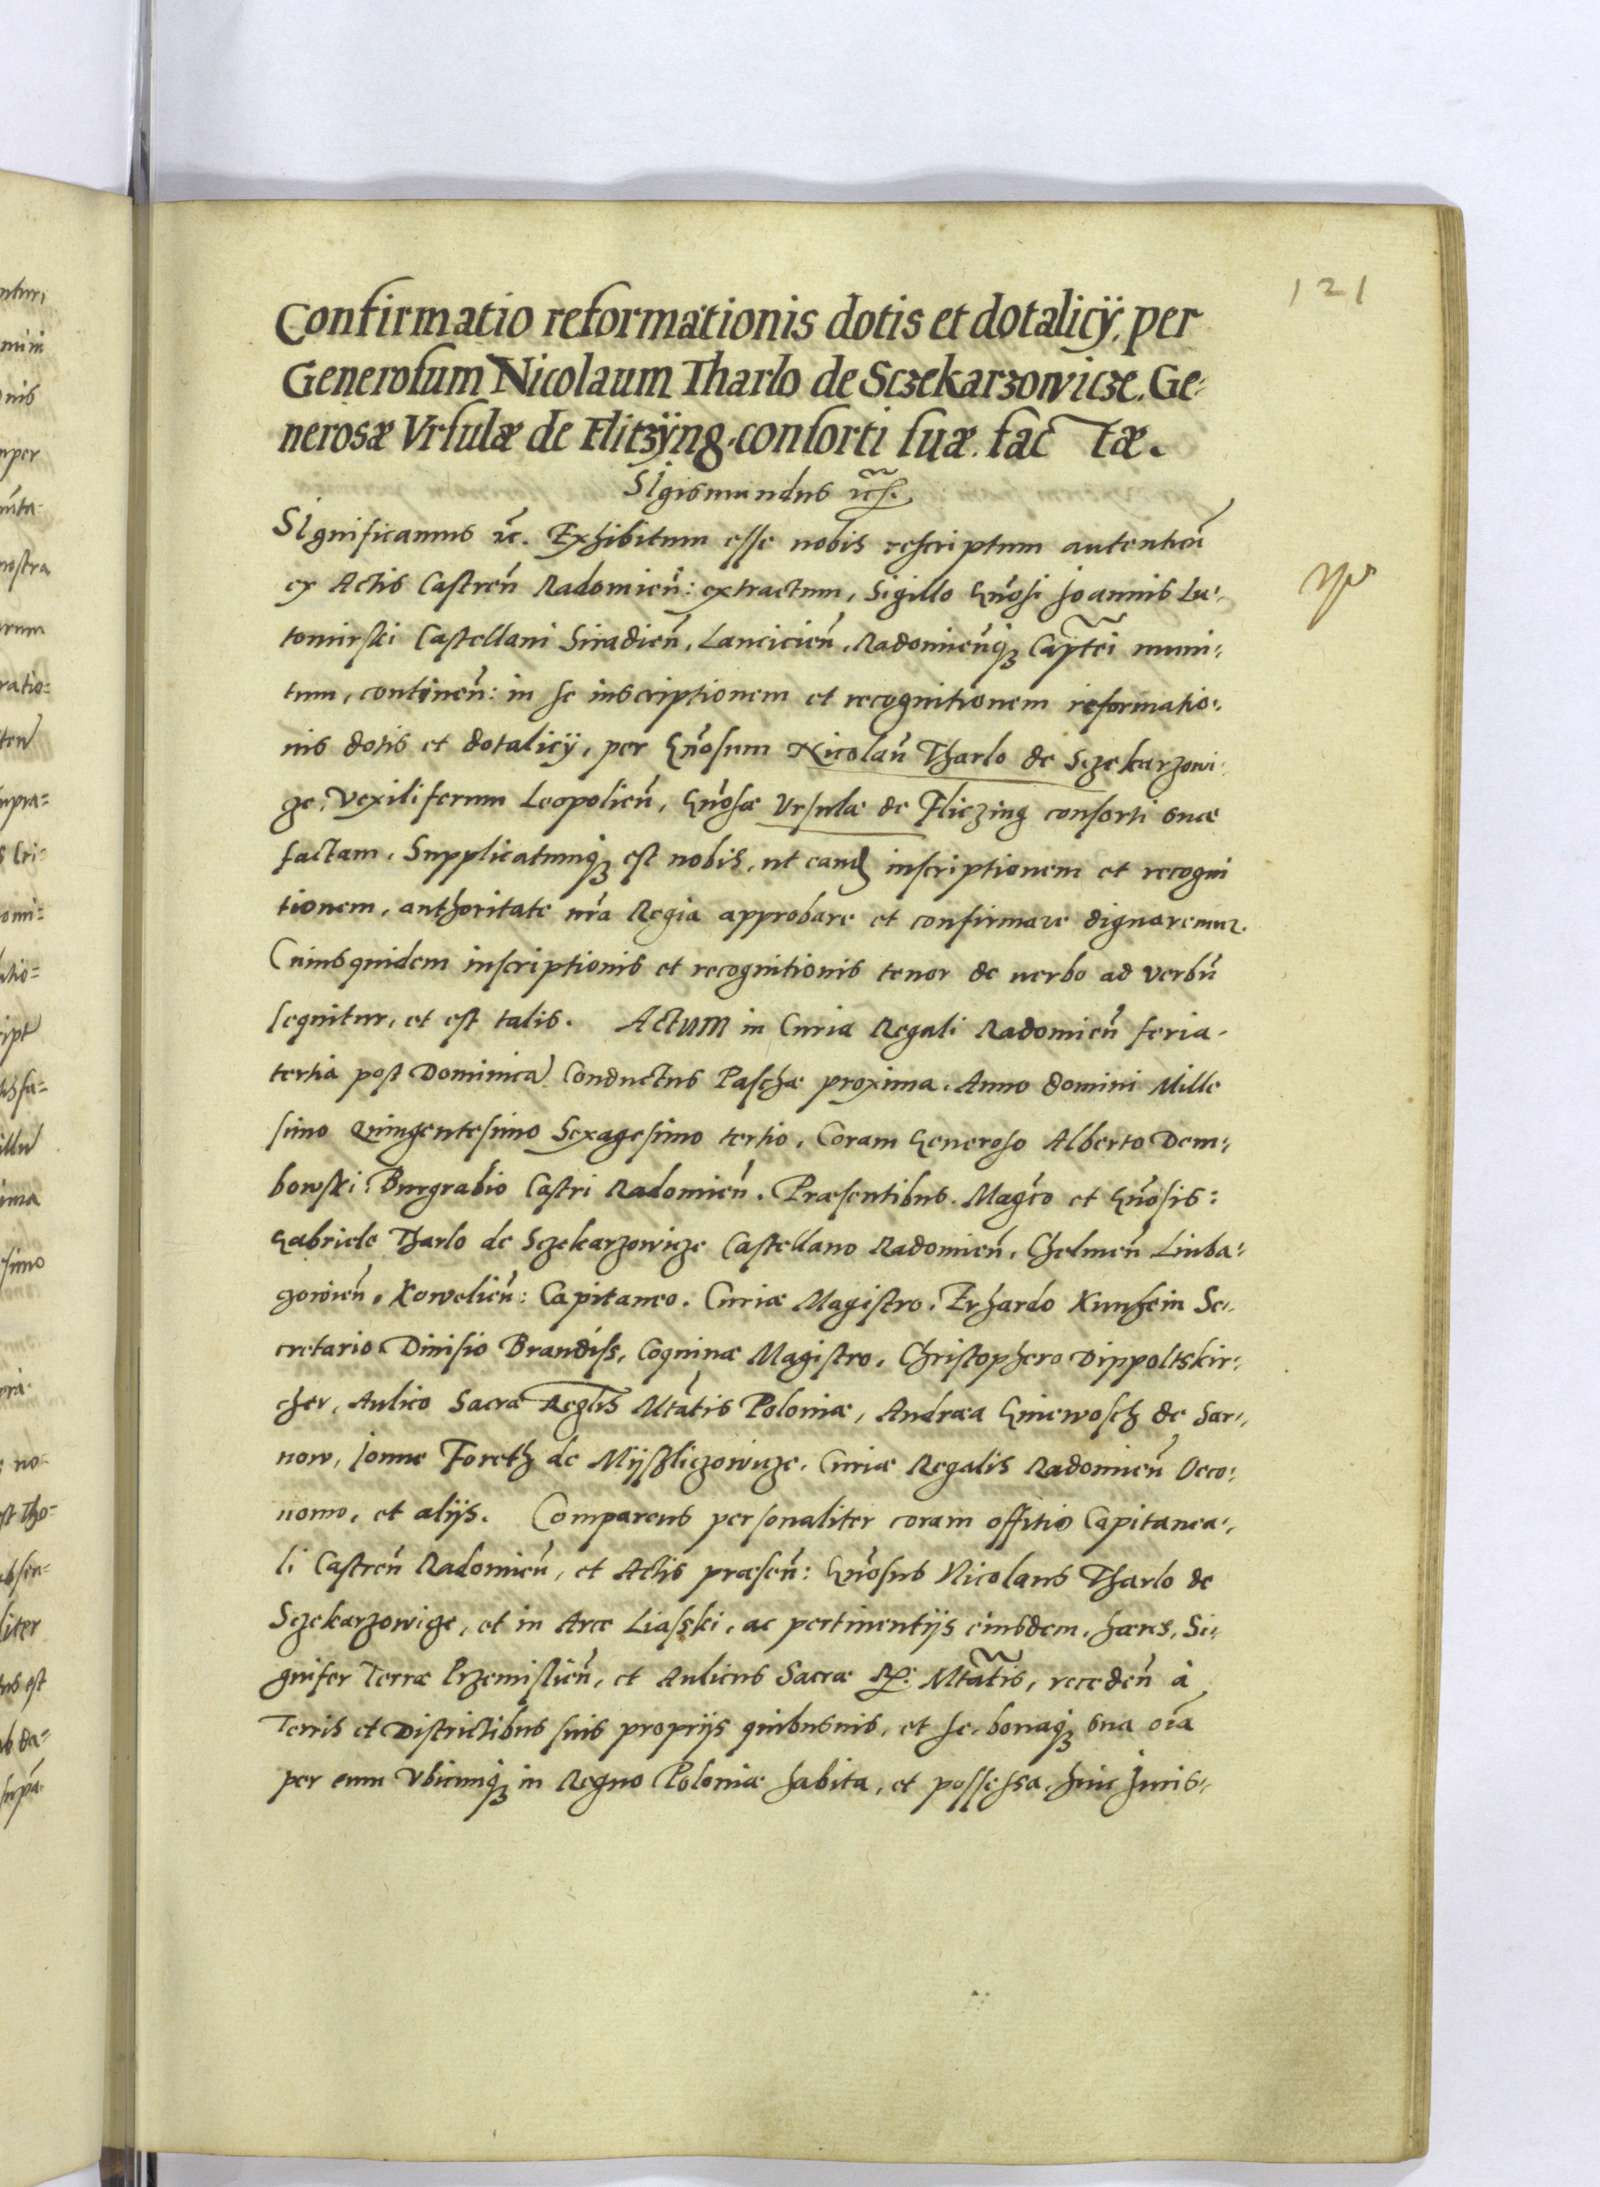 121
Confirmatio reformationis dotis et dotalicÿ, per
Generosum Nicolaum Tharlo de Sczekarzowicze, Ge-
nerosæ Vrsulæ de Flitzÿng, consorti suæ, factæ.
Sigismundus
Significamus etc. Exhibitum esse nobis rescriptum autenticũ
ex Actis Castreñ Radomieñ: extractum, Sigillo Gñosi Joannis Lu-
tomirski Castellani Siradieñ, Lancicieñ, Radomieñq3 Captei muni-
tum, contineñ: in se inscriptionem et recognitionem reformatio-
nis dotis et dotalicÿ, per Gñosum Nicolaũ Tharlo de Sczekarzowi-
ze, Vexiliferum Leopolieñ, Gñosæ Vrsulæ de Fliczing consorti suæ
factam. Supplicatumq3 est nobis, ut eand inscriptionem et recogni
tionem, authoritate nr̃a Regia approbare et confirmare dignaremur.
Cuiusquidem inscriptionis et recognitionis tenor de uerbo ad verbũ
sequitur, et est talis. Actum in Curia Regali Radomieñ feria
tertia post Dominicã Conductus Paschæ proxima. Anno domini Mille
simo Quingentesimo Sexagesimo tertio, Coram Generoso Alberto Dem-
bowski Burgrabio Castri Radomieñ. Præsentibus Magco et Gñosis:
Gabriele Tharlo de Sczekarzowicze Castellano Radomieñ, Chelmeñ Liuba-
czowieñ, Kowelieñ: Capitaneo. Curiæ Magistro. Erhardo Kunhein Se-
cretario Dinisio Brandiss, Coquinæ Magistro, Christophero Dippoltskir-
cher, Aulico Sacræ Reglis Mtatis Poloniæ, Andræa Gniewosch de Sar-
now, Jonne Foreth de Mÿszliczowicze, Curiæ Regalis Radomieñ Oeco-
nomo, et alÿs. Comparens personaliter coram offitio Capitanea-
li Castreñ Radomieñ, et Actis præseñ: Gñosus Nicolaus Tharlo de
Sczekarzowicze, et in Arce Liasski, ac pertinentÿs eiusdem, hæres, Si-
gnifer Terræ Przemislieñ, et Aulicus Sacræ Mtatis, recedeñ à
Terris et Districtibus suis proprÿs quibusuis, et se, bonaq3 sua oĩa
per eum Vbicunq3 in Regno Poloniæ habita, et possessa, huic Juris-